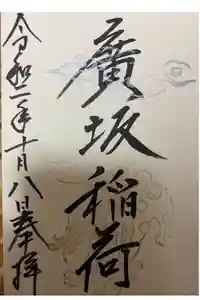 廣坂稲荷
令和二年十月八日奉拝